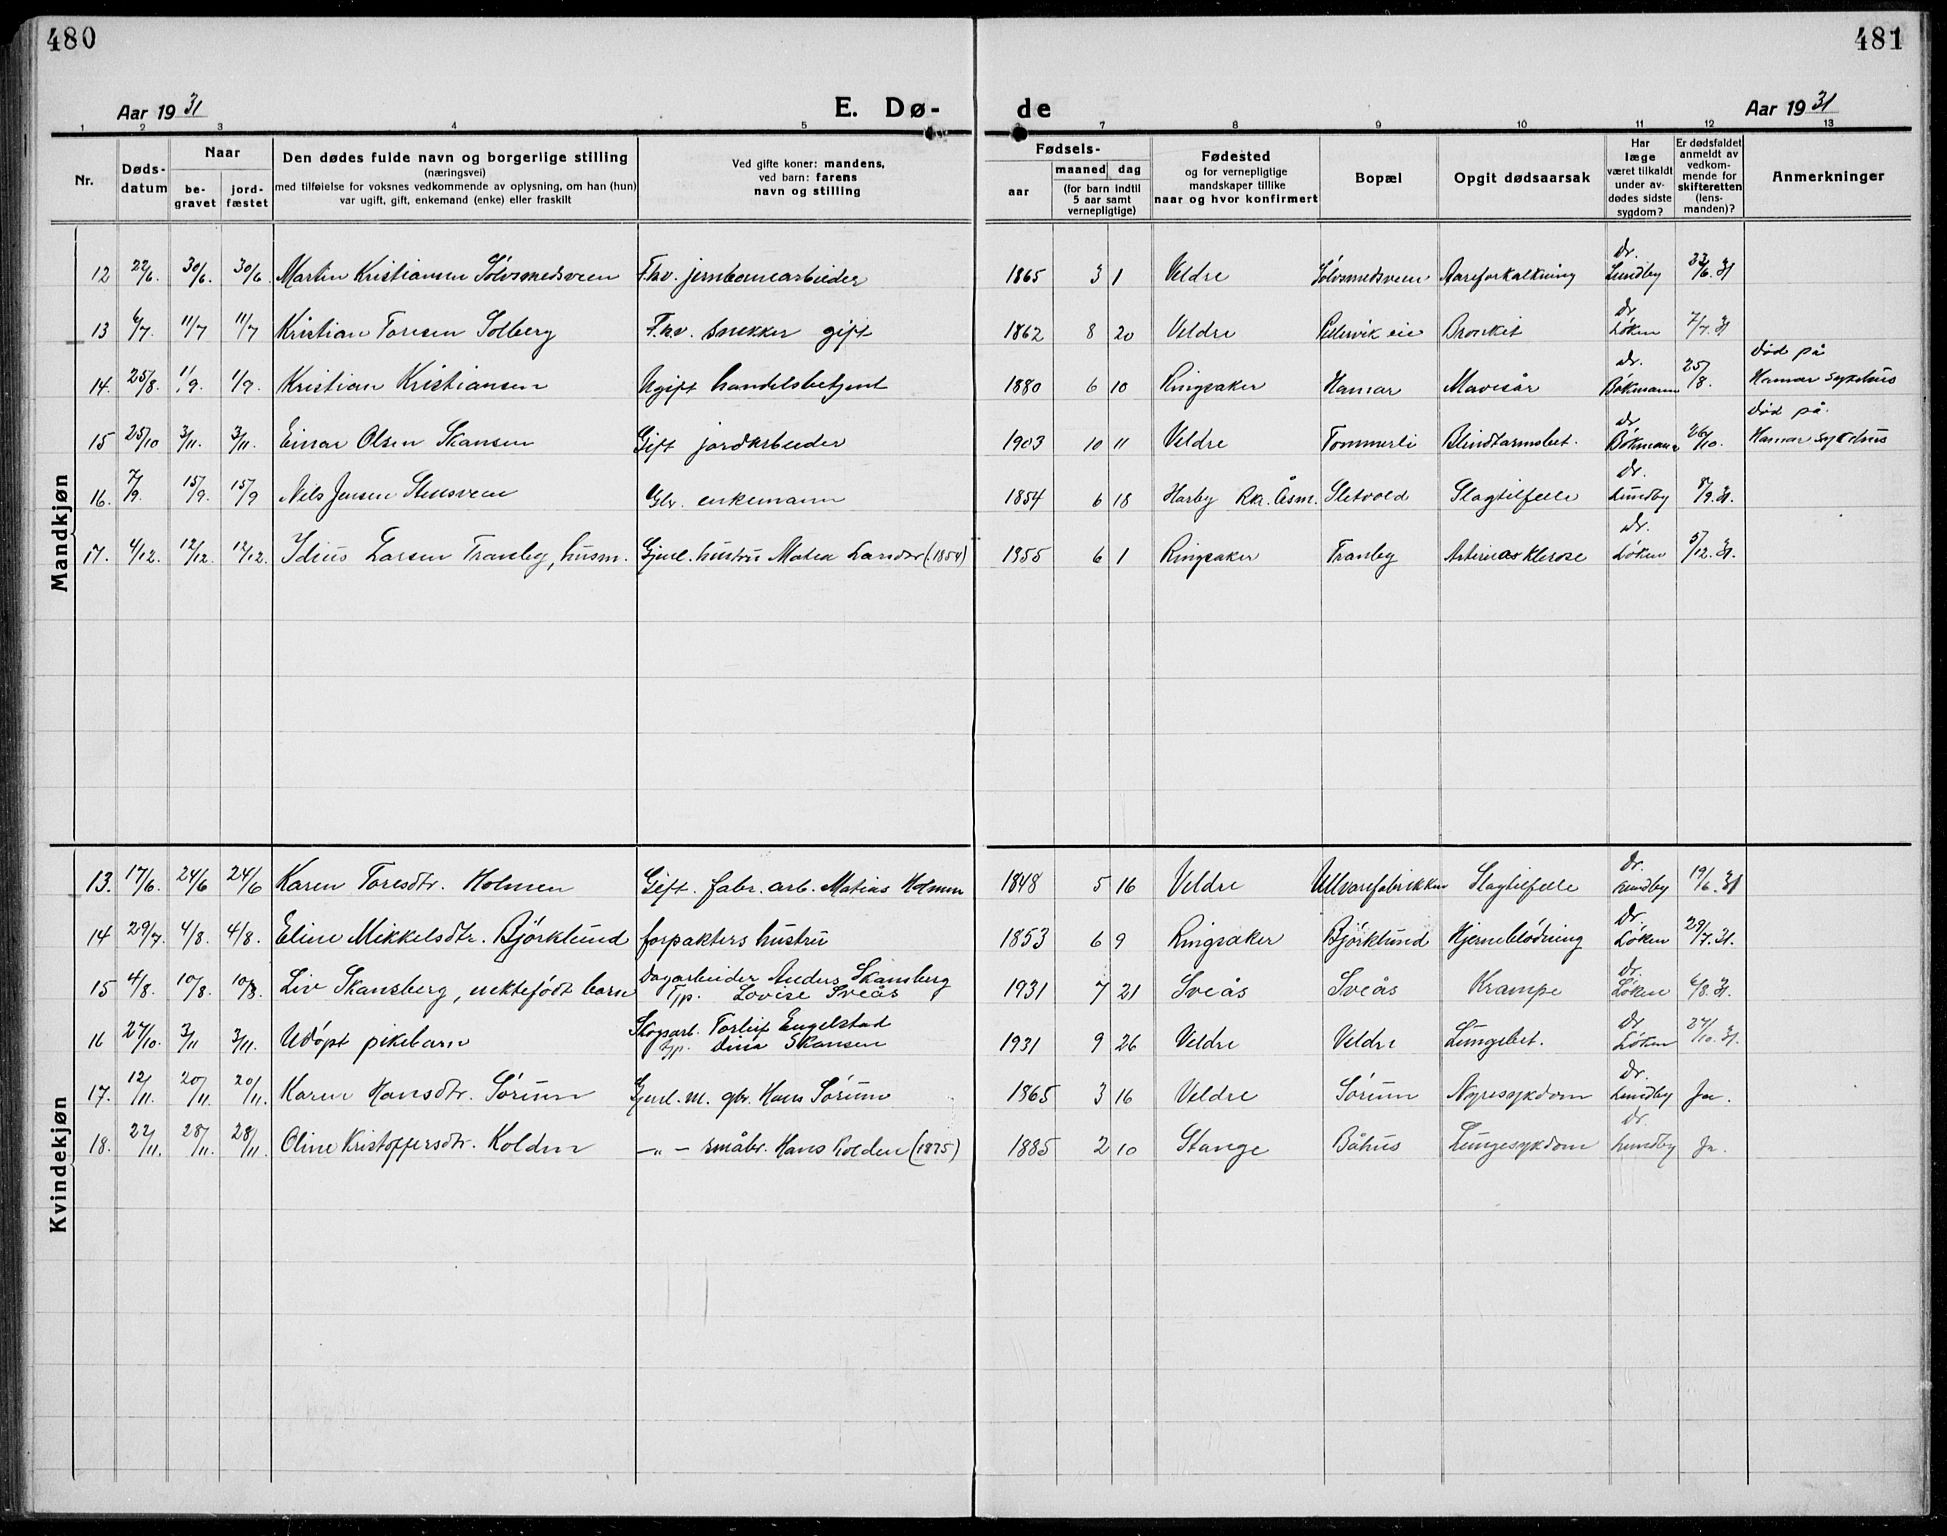 480
481
Aar 1931
E. Dø-
de
Aar 1931
1 2 3 4 5 7 8 9 10 11 12 13
Nr.
Døds-
datum
Naar
be-
gravet
jord-
fæstet
Den dødes fulde navn og borgerlige stilling
(næringsvei)
med tilføielse for voksnes vedkommende av oplysning, om han (hun)
var ugift, gift, enkemand (enke) eller fraskilt
Ved gifte koner: mandens,
ved barn: farens
navn og stilling
Fødsels-
aar
maaned dag
(for barn indtil
5 aar samt
vernepligtige)
Fødested
og for vernepligtige
mandskaper tillike
naar og hvor konfirmert
Bopæl
Opgit dødsaarsak
Har
læge
været tilkaldt
under av-
dødes sidste
sygdom?
Er dødsfaldet
anmeldt av
vedkom-
mende for
skifteretten
(lens-
manden)?
Anmerkninger
Mandkjøn
12 22/6. 30/6. 30/6 Martin Kristiansen Sølvsmedsveen Fhv. jernbanearbeider 1865 3 1 Veldre Sølvsmedsveen Aareforkalkning Dr. Lundby 6. 31
13 6/7. 11/7 11/7 Kristian Toresen Solberg Fhv. snekker gift 1862 8 20 Veldre eie Bronkit Dr. Løken 7/7. 31
14. 25/8. 1/9. 1/9. Kristian Kristiansen Ugift handelsbetjent 1880 6 10 Ringsaker Hamar Mavesår dr. Bøkmann 25/8. død på Hamar sykehus
15 25/10 3/11. 3/11. Einar Olsen Skansen Gift jordarbeider 1903 10 11 Veldre Tommerli Blindtarmsbet. dr. Bøkmann 26/10. død på. Hamar sykehus
16. 7/9. 15/9. 15/9 Nils Jensen Stensveen enkemann 1854 6 18 Harby Rk. Åsm. Sletvold Slagtilfelle dr. Lundby 8/9. 31.
17. 4/12. 12/12. 12/12. Idius Larsen Tranby, husm. Gjenl. hustru Matea Larsdtr (1854) 1855 6 1 Ringsaker Tranby Arteriosklerose dr. Løken 5/12. 31.
Kvindekjøn
13. 17/6. 24/6 24/6 Karen Toresdtr. Holmen Gift. fabr. arb. Matias Holmen 1848 5 16 Veldre Ullvarefabrikken Slagtilfelle dr. Lundby 19/6. 31
14 29/7. 4/8. 4/8. Eline Mikkelsdtr. Bjørklund forpakters hustru 1853 6 9 Ringsaker Bjørklund Hjerneblødning Dr. Løken 29/7. 31.
15 4/8. 10/8. 10/8. Liv Skansberg, uektefødt barn Dagarbeider Anders Skansberg
Tjp. Lovise Sveås 1931 7 21 Sveås Sveås Krampe Dr. Løken 6/8. 31.
16 27/10. 3/11 3/11. Udøpt pikebarn Skogsarb. Torleif Engelstad
tjp. Dina Skansen 1931 9 26 Veldre Veldre Lungebet. Dr. Løken 27/10. 31.
17. 12/11. 20/11. 20/11. Karen Hansdtr. Sørum Gjenl. m. gbr. Hans Sørum 1865 3 16 Veldre Sørum Nyresykdom dr. Lundby Ja.
18. 22/11. 28/11. 28/11. Oline Kristoffersdtr. Kolden —„— småbr. Hans Kolden (1875) 1885 2 10 Stange Båhus Lungesykdom dr. Lundby Ja.